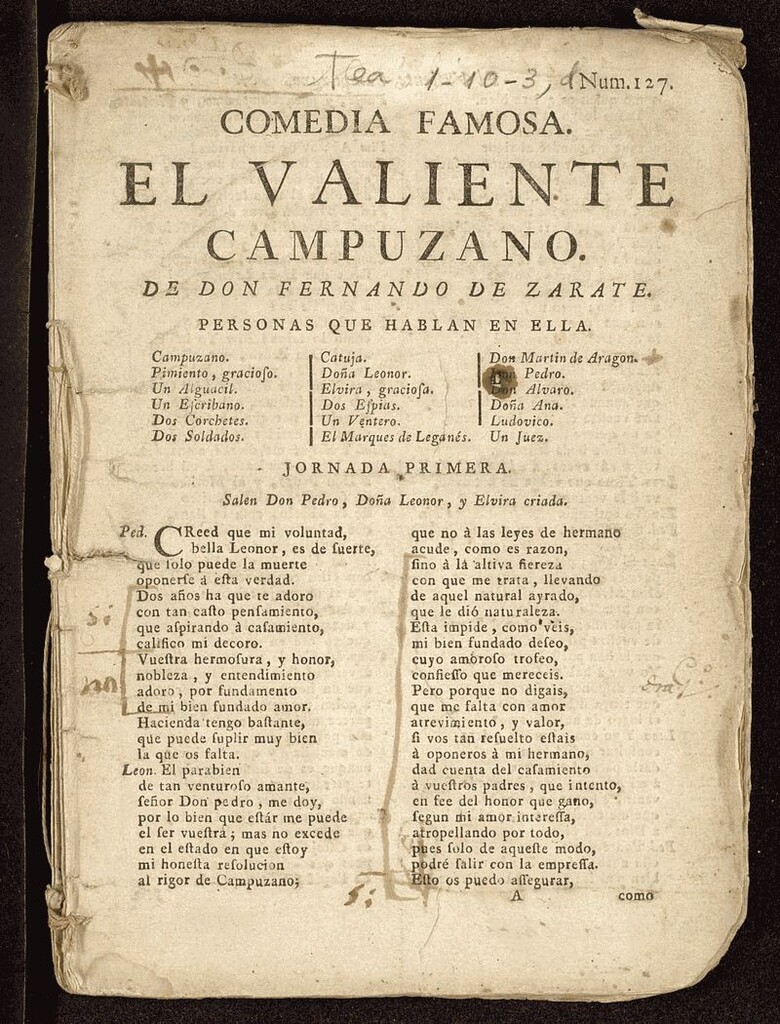 Tea 1-10-3, d
Num. 127.
COMEDIA FAMOSA.
EL VALIENTE
CAMPUZANO.
DE DON FERNANDO DE ZARATE.
PERSONAS QUE HABLAN EN ELLA.
Campuzano.
Pimiento, gracioſo.
Un Alguacil.
Un Eſcribano.
Dos Corchetes.
Dos Soldados.
Catuja.
Doña Leonor.
Elvira, gracioſa.
Dos Eſpias.
Un Ventero.
El Marques de Leganés.
Don Martin de Aragon.
Don Pedro.
Don Alvaro.
Doña Ana.
Ludovico.
Un Juez.
JORNADA PRIMERA.
Salen Don Pedro, Doña Leonor, y Elvira criada.
Ped. CReed que mi voluntad,
bella Leonor, es de ſuerte,
que ſolo puede la muerte
oponerſe á eſta verdad.
Dos años ha que te adoro
con tan caſto penſamiento,
que aſpirando à caſamiento,
califico mi decoro.
Vueſtra hermoſura, y honor,
nobleza, y entendimiento
adoro, por fundamento
de mi bien fundado amor.
Hacienda tengo baſtante,
que puede ſuplir muy bien
la que os falta.
Leon. El parabien
de tan venturoſo amante,
ſeñor Don pedro, me doy,
por lo bien que eſtár me puede
el ſer vueſtra; mas no excede
en el eſtado en que eſtoy
mi honeſta reſolucion
al rigor de Campuzano;
si
no
si
que no à las leyes de hermano
acude, como es razon,
ſino à là altiva fiereza
con que me trata, llevando
de aquel natural ayrado,
que le dió naturaleza.
Eſta impide, como veis,
mi bien fundado deſeo,
cuyo amoroſo trofeo,
confieſſo que mereceis.
Pero porque no digais,
que me falta con amor
atrevimiento, y valor,
ſi vos tan reſuelto eſtais
à oponeros à mi hermano,
dad cuenta del caſamiento
à vueſtros padres, que intento,
en fee del honor que gano,
ſegun mi amor intereſſa,
atropellando por todo,
pues ſolo de aqueſte modo,
podré ſalir con la empreſſa.
Eſto os puedo aſſegurar,
A
como